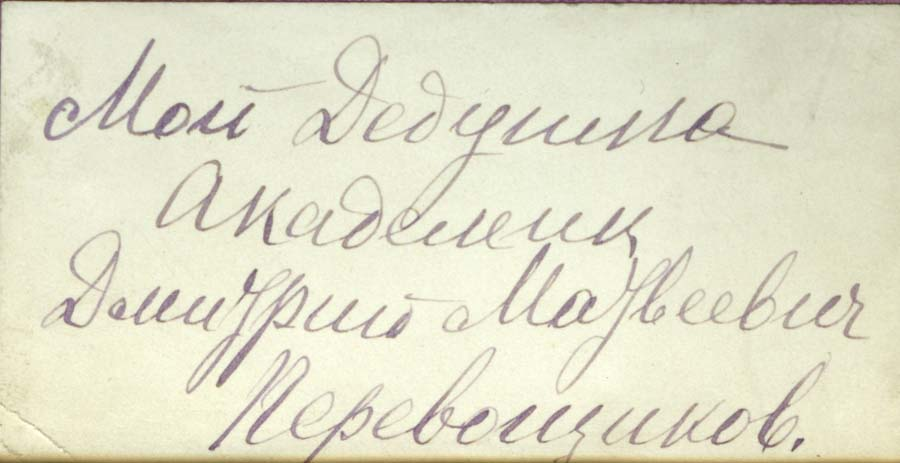 Мой Дедушка
Академик
Дмитрий Матвеевич
Перевощиков.